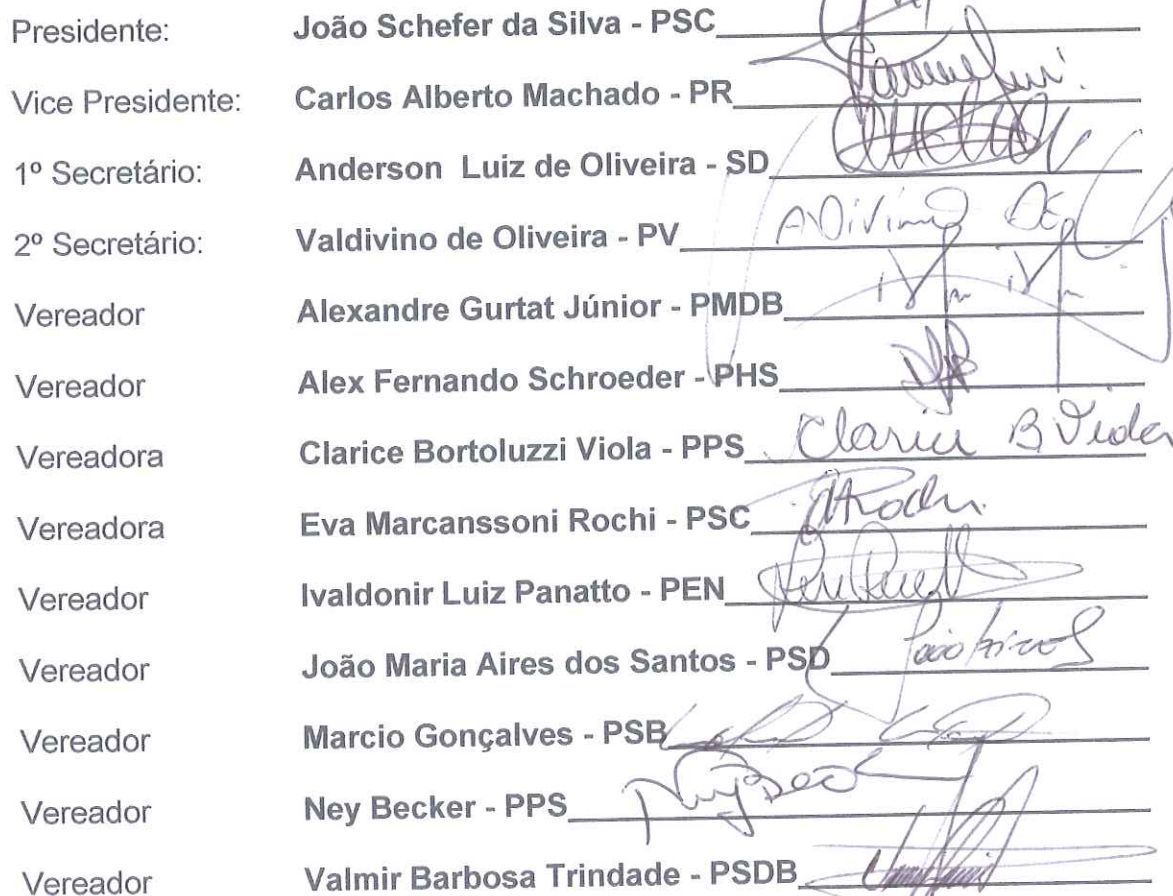 Presidente: João Schefer da Silva - PSC
Vice Presidente: Carlos Alberto Machado - PR
1º Secretário: Anderson Luiz de Oliveira - SD
2º Secretário: Valdivino de Oliveira - PV
Vereador Alexandre Gurtat Júnior - PMDB
Vereador Alex Fernando Schroeder - PHS
Vereadora Clarice Bortoluzzi Viola - PPS Clarice B Viola
Vereadora Eva Marcanssoni Rochi - PSC
Vereador Ivaldonir Luiz Panatto - PEN
Vereador João Maria Aires dos Santos - PSD
Vereador Marcio Gonçalves - PSB
Vereador Ney Becker - PPS
Vereador Valmir Barbosa Trindade - PSDB